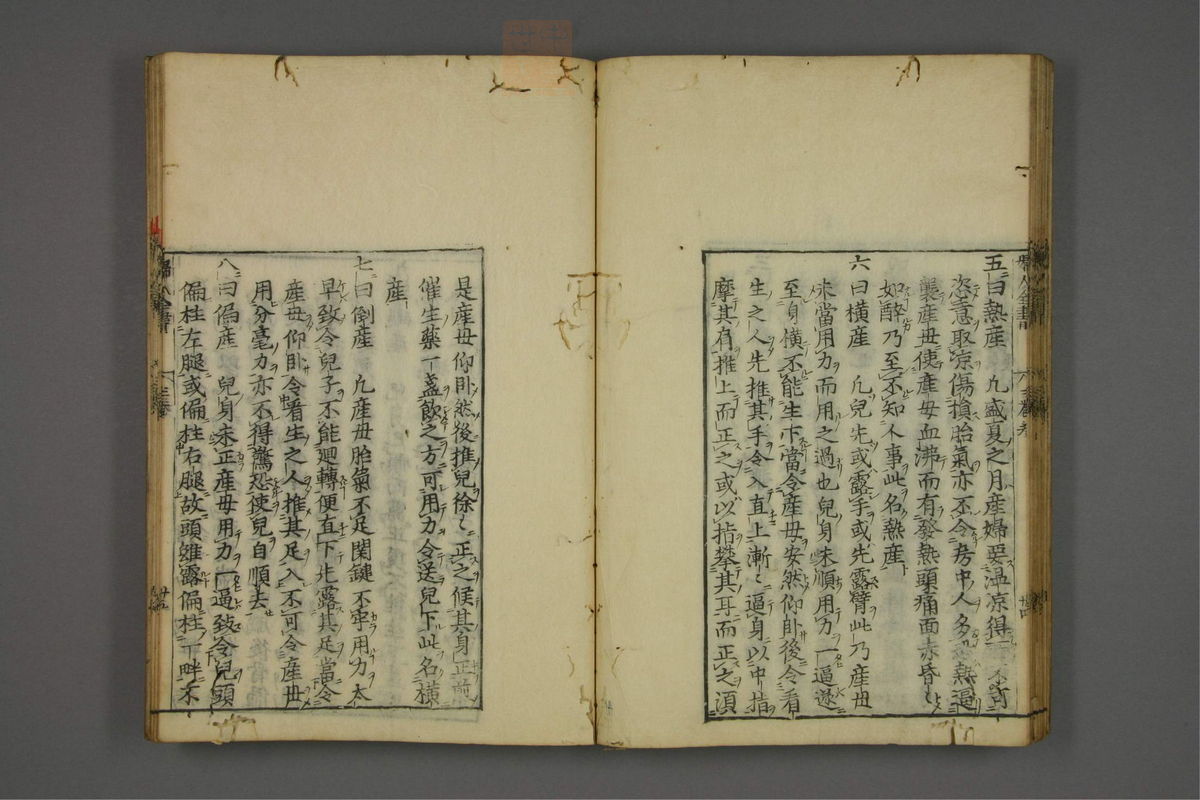 五曰熱産 凢盛夏之月産婦要温凉得 不可
恣意取凉傷損胎氣亦不令房中人多 熱逼
襲産母使産母血沸而有發熱頭痛面赤昏〻
如醉乃至不知人事此名熱産
六曰横産 凢兒先或露手或先露臂此乃産母
未當用力而用之過也兒身未順用力一逼遂
至身横不能生下當令産母安然仰卧後令看
生之人先推其手令入直上漸〻逼身以中指
摩其肩推上而正之或以指攀其耳而正之須
是産母仰卧然後推兒徐〻正之候其身正煎
催生藥一盞飲之方可用力令送兒下此名横
産
七曰倒産 凢産母胎氣不足関鍵不牢用力太
早致令兒子不能廻轉便直下先露其足當令
産母仰卧令看生之人推其足入不可令産母
用分毫力亦不得驚恐使兒自順去
八曰偏産 兒身未正産母用力一逼致令兒頭
偏柱左腿或偏柱右腿故頭雖露偏柱一畔不